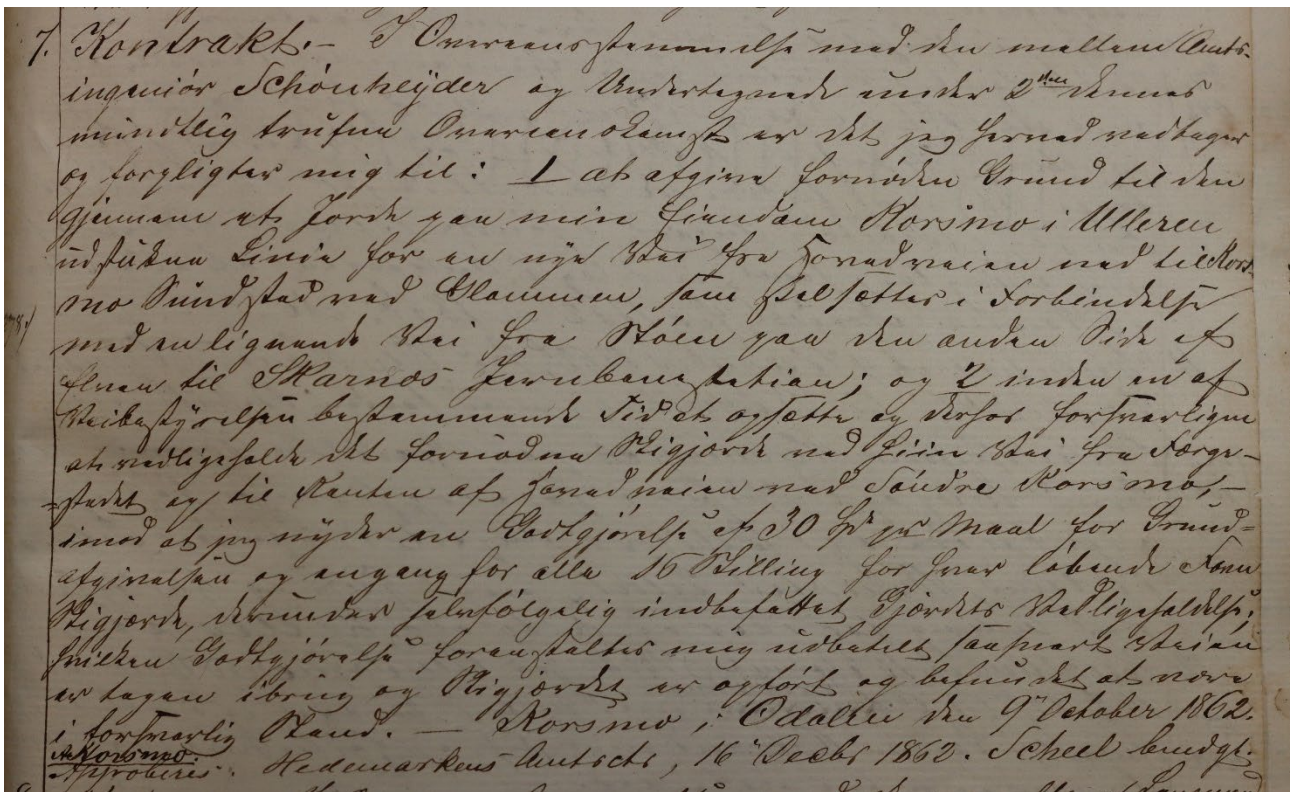 7. Kontrakt. – I Overeensstemmelse med den mellem Amts-
ingeniór Schónheÿder og Undertegnede under 2den dennes
mundtlig trufne Overeenskomst er det jeg herved vedtager
og forpligter mig til: 1 at afgive fornøden Grund til den
gjennem et Jorde paa min Eiendom Korsmo i Ulleren
udstukne Linie for en nye Vei fra Hovedveien ned til Kors-
mo Sundsted ved Glommen, som skal sættes i Forbindelse
med en lignende Vei fra Stóen paa den anden Side af
Elven til Skarnæs Jernbanestation; og 2 inden en af
Veibestyrelsen bestemmende Tid at opsætte og derhos forsvarligen
at vedligeholde det fornødne Skigjærde ved hiin Vei fra Færge-
=stedet og til Kanten af Hovedveien ved Sóndre Korsmo, –
imod at jeg nyder en Godtgjórelse af 30 Spd pr Maal for Grund=
afgivelsen og engang for alle 16 Skilling for hver lóbende Favn
Skigjærde, derunder selvfólgelig indbefattet Gjærdets Vedligeholdelse;
hvilken Godtgjórelse foranstaltes mig udbetalt saasnart Veien
er tagen ibrug og Skigjærdet er opfórt og befundet at være
i forsvarlig Stand. – Korsmo i Odalen den 9de October 1862.
A. Korsmo.
Approberes. Hedemarkens Amtscts, 16 Decbr 1862. Scheel bmdgt.